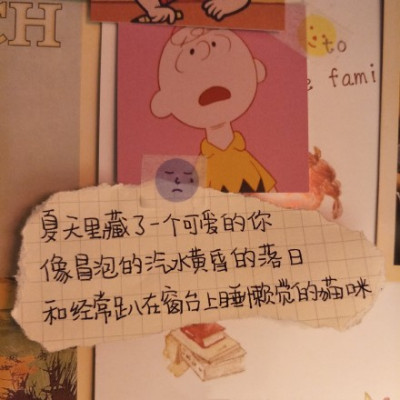 CH
to
e fami
夏天里藏了一个可爱的你
像冒泡的汽水黄昏的落日
和经常趴在窗台上睡懒觉的猫咪